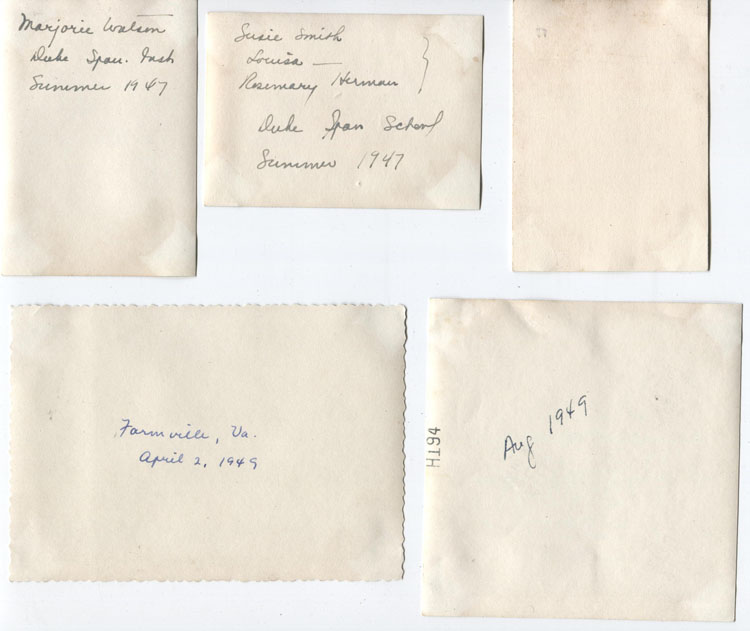 Marjorie Watson
Duke Span. Inst
Summer 1947
Susie Smith
Louisa —
Rosemary Herman
Duke Span School
Summer 1947
Farmville, Va.
April 2, 1949
Aug 1949
H194